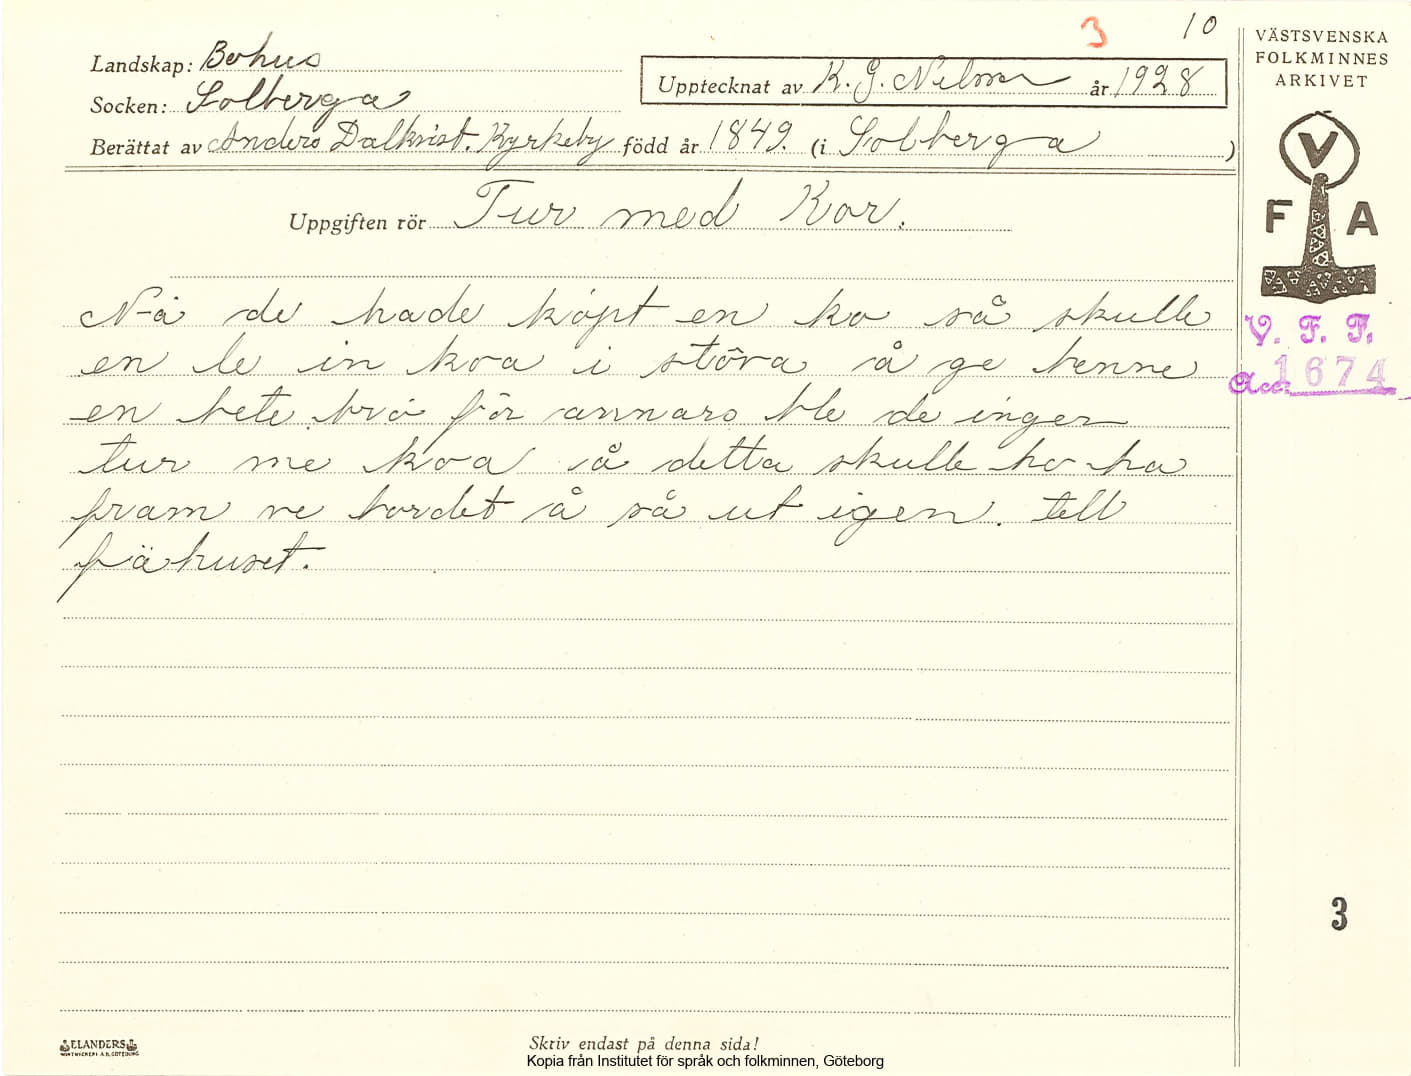 3 10
VÄSTSVENSKA
FOLKMINNES
ARKIVET
Landskap: Bohus
Upptecknat av K. G. Nilson år 1928
Socken: Solberga
Berättat av Anders Dalkvist. Kyrkeby född år 1849. (i Solberga )
V
F A
Uppgiften rör Tur med Kor.
Nå de hade köpt en ko så skulle
en le in koa i stôva å ge henne
en bete brö för annars ble de ingen
tur me koa å detta skulle ho ha
fram ve bordet å så ut igen. tell
fähuset.
V. F. F.
Acc: 1674
3
ELANDERS
Skriv endast på denna sida!
Kopia från Institutet för språk och folkminnen, Göteborg